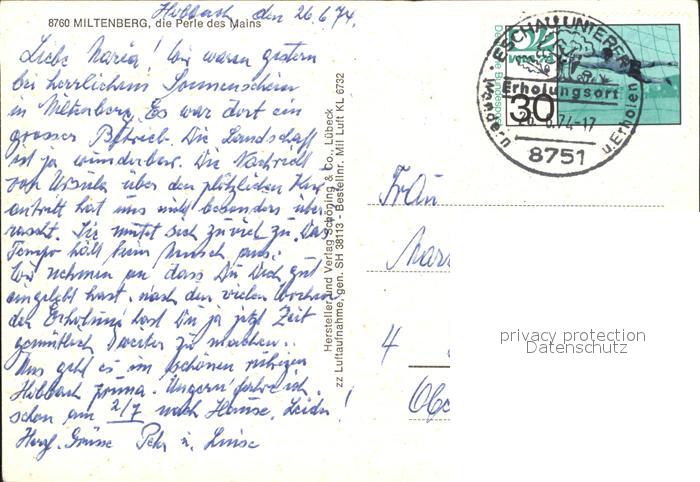 Hobbach den 26.6.74.
8760 MILTENBERG, die Perle des Mains
Liebe Maria! Wir waren gestern
bei herrlichem Sonnenschein
in Miltenberg. Es war dort ein
grosser Betrieb. Die Landschaft
ist ja wunderbar. Die Nachricht
von Ursula über den plötzlichen Kur
antritt hat uns nicht besonders über
rascht. Sie mutet sich zuviel zu. Das
Tempo hält kein Mensch aus.
Wir nehmen an dass Du Dich gut
eingelebt hast. Nach den vielen Wochen
der Erholung hast Du ja jetzt Zeit
gemütlich weiter zu machen..
Uns geht es im schönen ruhigen
Hobbach prima. Ungern fahre ich
schon am 2/7 nach Hause. Leider!
Herzl. Grüsse Peter u. Luise
Hersteller und Verlag Schöning & Co., Lübeck
zz Luftaufnahme, gen. SH 38113 - Bestellnr. Mil Luft KL 6732
Deutsche Bundespost
30
ESCHAU UNTERFR.
Erholungsort
26.6.74-17
Wandern u. Erholen
8751
Frau
Mar
4
privacy protection
Datenschutz